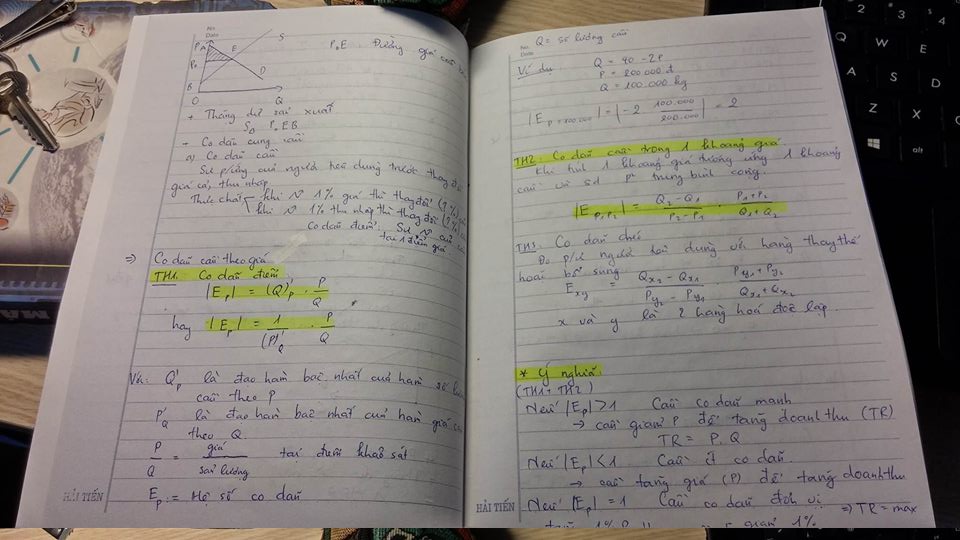 No.
Date
S
P
A
E
P₀
D
B
O
Q
P₀E Đường giá
+ Thặng dư sản xuất
S₀ P₀EB
- Co dãn cung cầu
a) Co dãn cầu
Sự p/ứng của người tiêu dùng trước thay đổi
giá cả, thu nhập
Thực chất khi 1% giá thì thay đổi (?%)
khi 1% thu nhập thì thay đổi (?%)
Co dãn điểm: Sự của cầu
tại 1 điểm giá
⇒ Co dãn cầu theo giá
TH1: Co dãn điểm
|Ep| = (Q)'p · P/Q
hay |Ep| = 1/(P)'Q · P/Q
Với: Q'p là đạo hàm bậc nhất của hàm số
cầu theo P
P'Q là đạo hàm bậc nhất của hàm giá
theo Q.
P/Q = giá/sản lượng tại điểm khảo sát
Ep := Hệ số co dãn
HẢI TIẾN
No.
Date
Q = số lượng cầu
Ví dụ: Q = 40 - 2P
P = 200.000 đ
Q = 100.000 kg
|E P=200.000| = |-2 100.000/200.000| = 2
TH2: Co dãn cầu trong 1 khoảng giá
Khi hút 1 khoảng giá tương ứng 1 khoảng
cầu và sd p² trung bình cộng.
|E P₁P₂| = Q₂ - Q₁/P₂ - P₁ · P₁ + P₂/Q₁ + Q₂
TH3: Co dãn chéo
Đo p/ư người tiêu dùng với hàng thay thế
hoặc bổ sung
Exy = Qx₂ - Qx₁/Py₂ - Py₁ · Py₁ + Py₂/Qx₁ + Qx₂
x và y là 2 hàng hoá độc lập.
* Ý nghĩa:
(TH1 + TH2)
Nếu |Ep| > 1 Cầu co dãn mạnh
→ cần giảm P để tăng doanh thu (TR)
TR = P.Q
Nếu |Ep| < 1 Cầu ít co dãn
→ cần tăng giá (P) để tăng doanh thu
Nếu |Ep| = 1 Cầu co dãn đơn vị ⇒ TR = max
1% giảm 1%
HẢI TIẾN